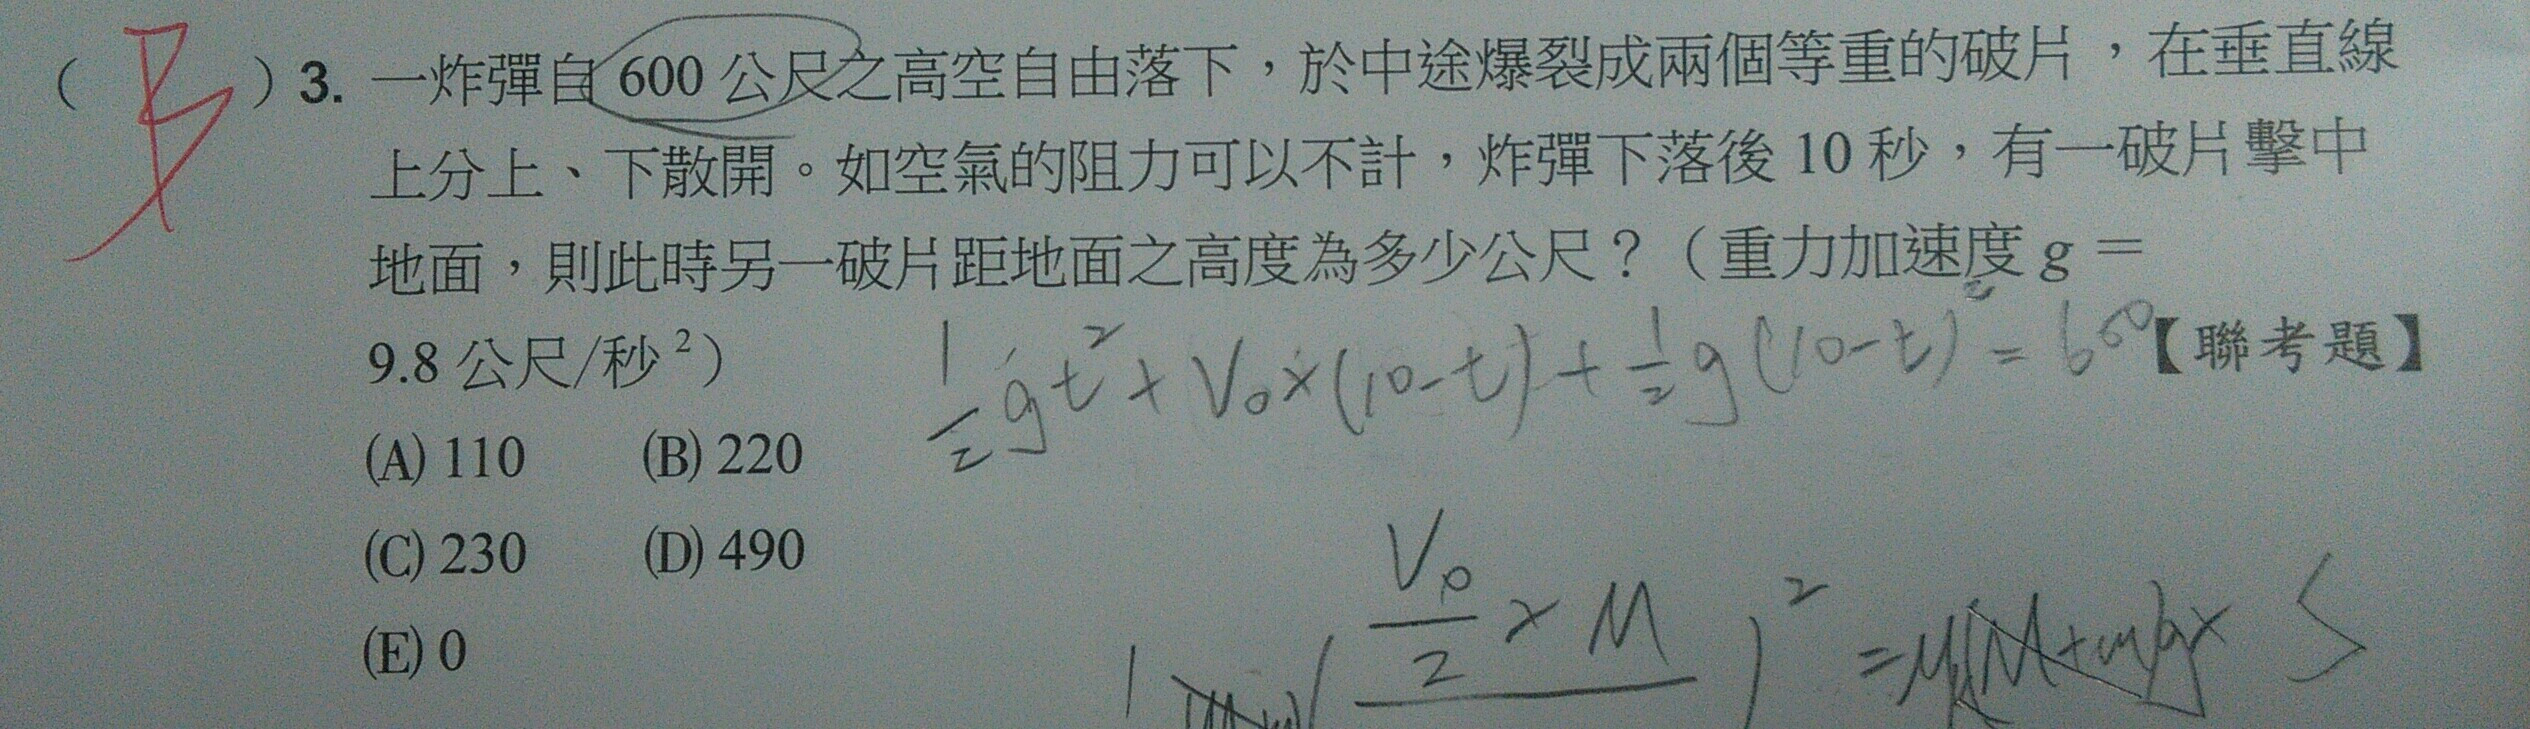 ( B ) 3. 一炸彈自 600 公尺之高空自由落下，於中途爆裂成兩個等重的破片，在垂直線
上分上、下散開。如空氣的阻力可以不計，炸彈下落後 10 秒，有一破片擊中
地面，則此時另一破片距地面之高度為多少公尺？（重力加速度 g ＝
9.8 公尺/秒²）
【聯考題】
½gt² + V₀×(10-t) + ½g(10-t)² = 600
(A) 110 (B) 220
(C) 230 (D) 490
(E) 0